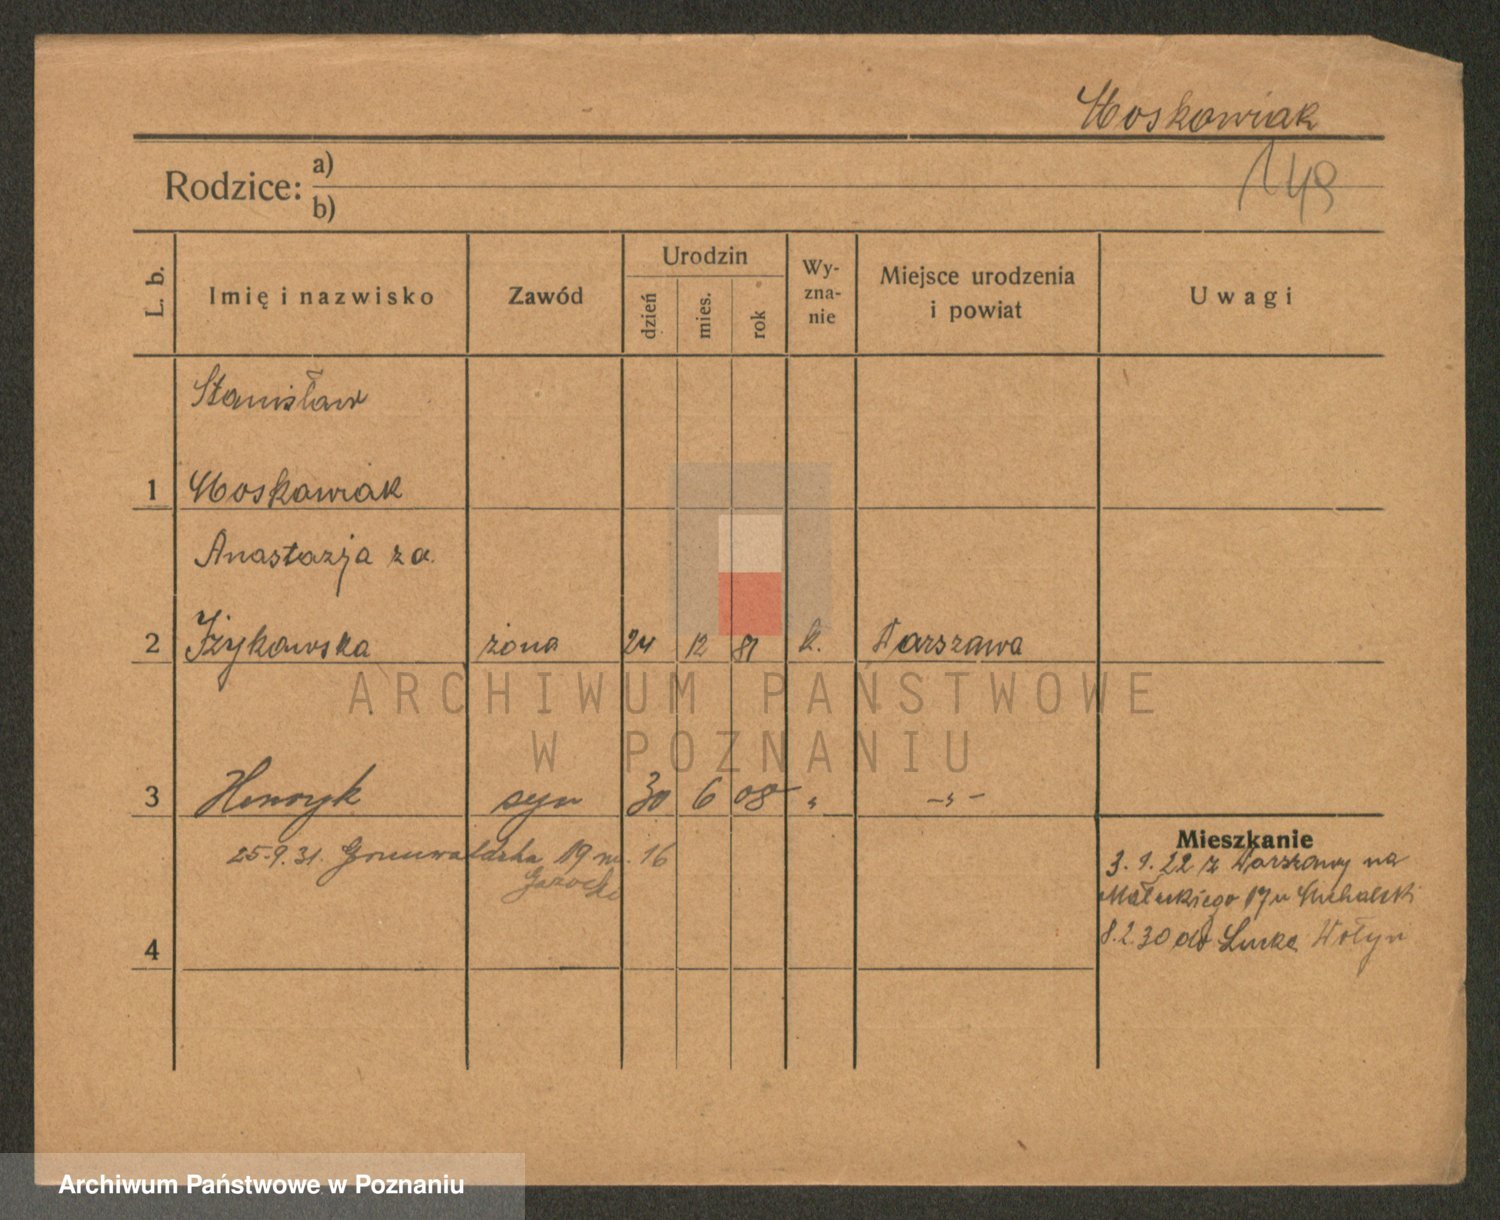 Moskawiak
149
Rodzice: a)
b)
L. b.
Imię i nazwisko
Zawód
Urodzin
dzień
mies.
rok
Wy-
zna-
nie
Miejsce urodzenia
i powiat
Uwagi
Stanisław
1 Moskawiak
Anastazja za.
2 Iżykowska żona 24 12 81 k. Warszawa
ARCHIWUM PAŃSTWOWE
W POZNANIU
3 Henryk syn 30 6 08 " -"-
25.9.31. Grunwaldzka 19 m. 16
Mieszkanie
3. 9. 22 z Warszawy na
Małeckiego 17 u Michalski
8.2.30 do Łucka Wołyń
4
Archiwum Państwowe w Poznaniu